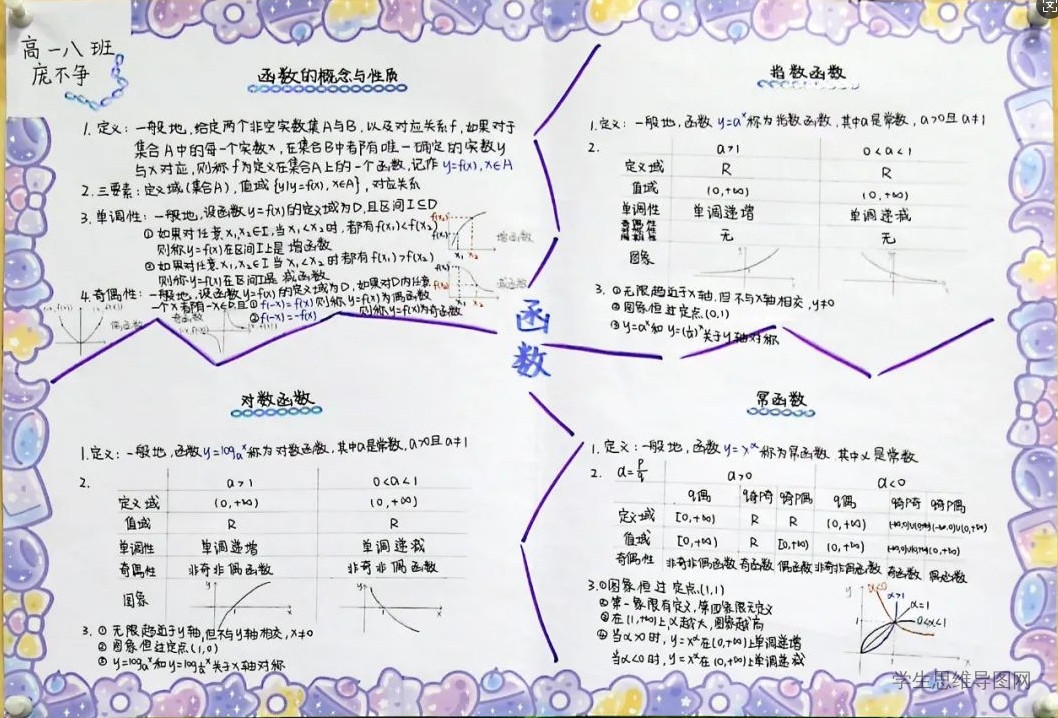 高一八班
庞不争
函数的概念与性质
1.定义：一般地，给定两个非空实数集A与B，以及对应关系f，如果对于
集合A中的每一个实数x，在集合B中都有唯一确定的实数y
与x对应，则称f为定义在集合A上的一个函数，记作y=f(x)，x∈A
2.三要素：定义域(集合A)，值域{y|y=f(x)，x∈A}，对应关系
3.单调性：一般地，设函数y=f(x)的定义域为D，且区间I⊆D
①如果对任意x₁，x₂∈I，当x₁<x₂时，都有f(x₁)<f(x₂)
则称y=f(x)在区间I上是增函数
②如果对任意x₁，x₂∈I当x₁<x₂时都有f(x₁)>f(x₂)
则称y=f(x)在区间I是减函数
增函数
减函数
4.奇偶性：一般地，设函数y=f(x)的定义域为D，如果对D内任意
一个x都有-x∈D，且①f(-x)=f(x)则称y=f(x)为偶函数
②f(-x)=-f(x) 则称y=f(x)为奇函数
偶函数
奇函数
函
数
指数函数
1.定义：一般地，函数y=aˣ称为指数函数，其中a是常数，a>0且a≠1
2. a>1 0<a<1
定义域 R R
值域 (0,+∞) (0,+∞)
单调性 单调递增 单调递减
奇偶性 无 无
图象
3.①无限趋近于x轴，但不与x轴相交，y≠0
②图象恒过定点(0,1)
③y=aˣ和y=(1/a)ˣ关于y轴对称
对数函数
1.定义：一般地，函数y=logₐx称为对数函数，其中a是常数，a>0且a≠1
2. a>1 0<a<1
定义域 (0,+∞) (0,+∞)
值域 R R
单调性 单调递增 单调递减
奇偶性 非奇非偶函数 非奇非偶函数
图象
3.①无限趋近于y轴，但不与y轴相交，x≠0
②图象恒过定点(1,0)
关于x轴对称
幂函数
1.定义：一般地，函数y=x^α称为幂函数，其中α是常数
2. α=p/q α>0 α<0
q偶 q奇p奇 q奇p偶 q偶 q奇p奇 q奇p偶
定义域 [0,+∞) R R (0,+∞) (-∞,0)∪(0,+∞) (-∞,0)∪(0,+∞)
值域 [0,+∞) R [0,+∞) (0,+∞) (-∞,0)∪(0,+∞) (0,+∞)
奇偶性 非奇非偶函数 奇函数 偶函数 非奇非偶函数 奇函数 偶函数
3.①图象恒过定点(1,1)
②第一象限有定义，第四象限无定义
③在(1,+∞)上α越大，图象越高
④当α>0时，y=x^α在(0,+∞)上单调递增
当α<0时，y=x^α在(0,+∞)上单调递减
α<0
α>1
α=1
0<α<1
学生思维导图网